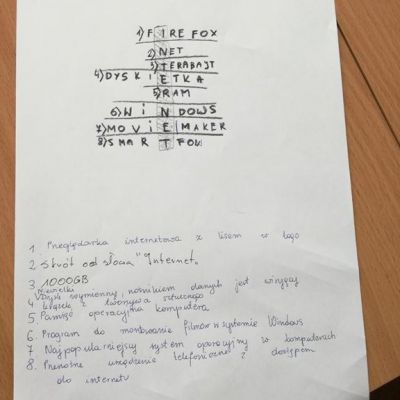 1) FIREFOX
2) NET
3) TERABAJT
4) DYSKIETKA
5) RAM
6) WiNDOWS
7) MOViE MAKER
8) SMARTFON
1 Przeglądarka internetowa z lisem w logo
2 Skrót od słowa "Internet.
3 1000GB
Niewielki
4 Dysk wymienny, nośnikiem danych jest wiotki
krążek z tworzywa sztucznego
5. Pamięć operacyjna komputera
6. Program do montowania filmów w systemie Windows
7 Najpopularniejszy system operacyjny w komputerach
8. Przenośne urządzenie telefoniczne z dostępem
do internetu